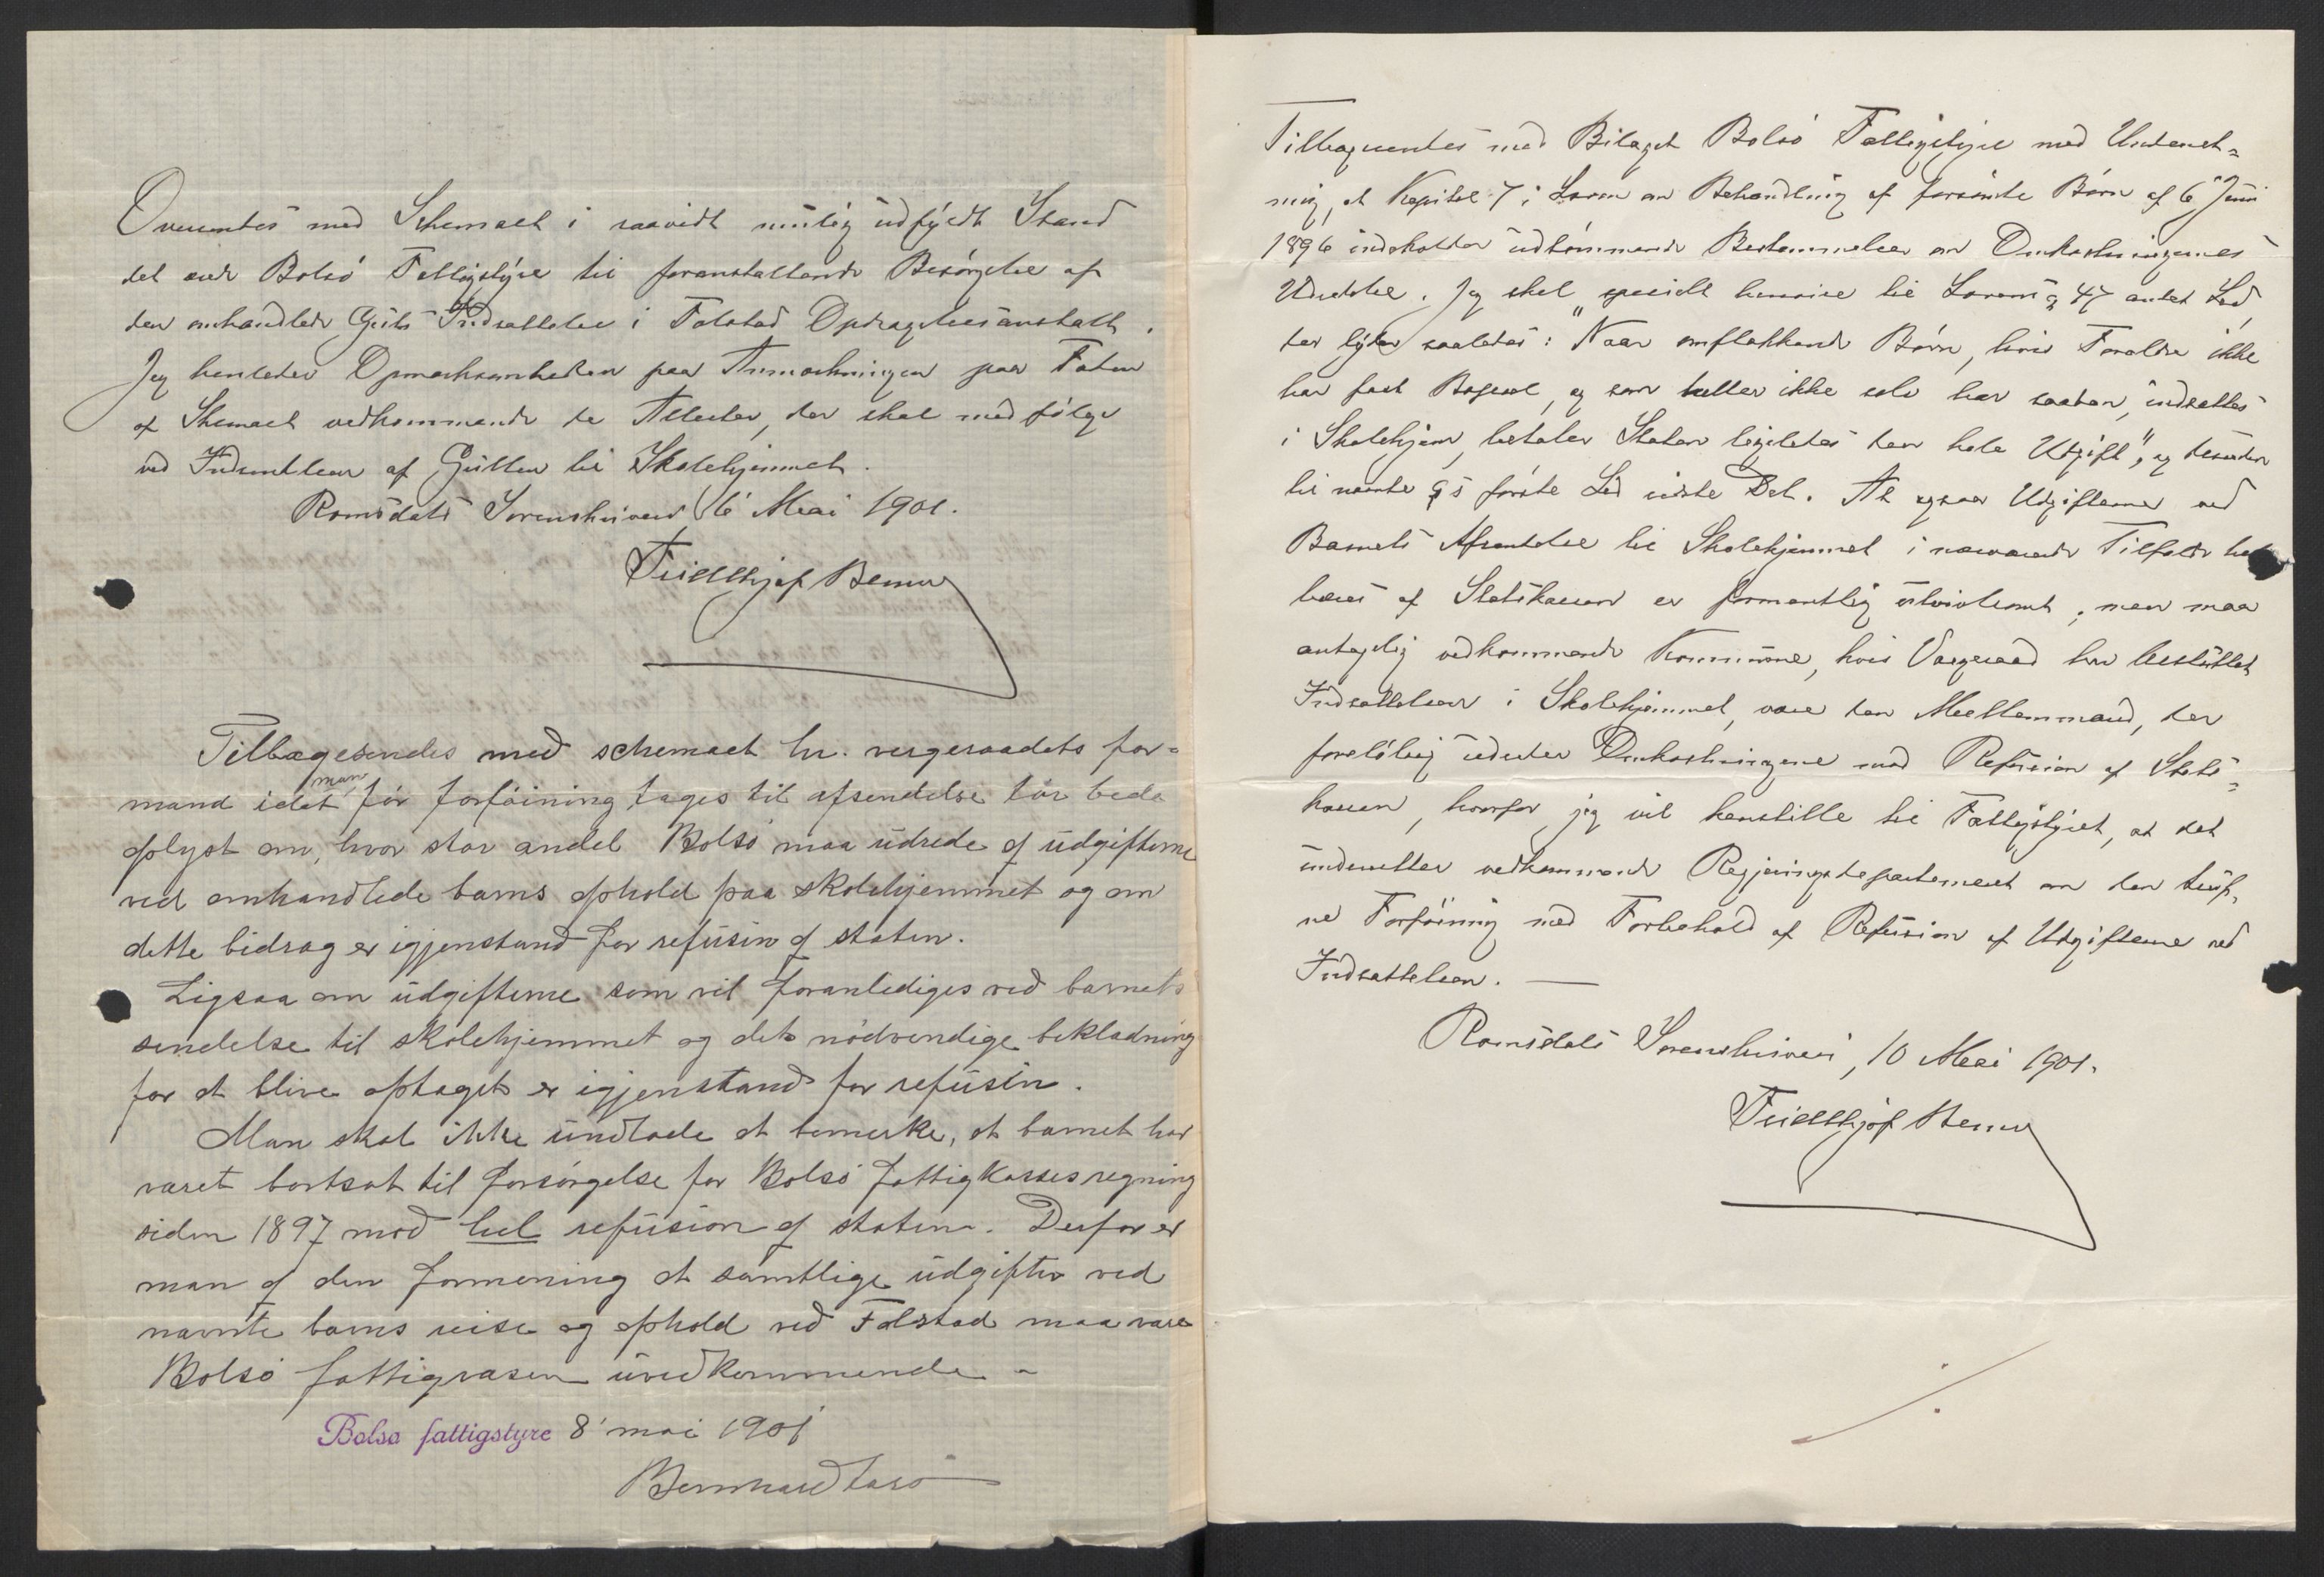 Oversendes med Schemaet i saavidt mulig udfyldt Stand
det ærede Bolsø Fattigstyre til foranstaltende Besørgelse af
den omhandlede Guts Indsættelse i Falstad Opdragelsesanstalt.
Jeg henleder Opmærksomheden paa Anmærkningen paa Foden
af Skemaet vedkommende de Attester, der skal medfølge
ved Indsendelsen af Gutten til Skolehjemmet.
Romsdals Sorenskriveri 6 Mai 1901.
Tilbagesendes med schemaet hr. vergeraadets for=
mand idet man før forføining tages til afsendelse tør bede
oplyst om, hvor stor andel Bolsø maa udrede af udgifterne
ved omhandlede barns ophold paa skolehjemmet og om
dette bidrag er igjenstand for refusion af staten.
Ligsaa om udgifterne som vil foranlediges ved barnets
sendelse til skolehjemmet og det nødvendige beklædning
for at blive optaget er igjenstand for refusion.
Man skal ikke undlade at bemerke, at barnet har
været bortsat til forsørgelse for Bolsø fattigkasses regning
siden 1897 mod hel refusion af staten. Derfor er
man af den formening at samtlige udgifter ved
nævnte barns reise og ophold ved Falstad maa være
Bolsø fattigvæsen uvedkommende -
Bolsø fattigstyre 8' mai 1901
Tilbagesendes med Bilaget Bolsø Fattigstyre med Underret=
ning, at Kapitel 7 i Loven om Behandling af forsømte Børn af 6 Juni
1896 indeholder udtømmende Bestemmelser om Omkostningernes
Udredelse. Jeg skal specielt henvise til Lovens § 47 andet Led,
der lyder saaledes: "Naar omflakkende Børn, hvis Forældre ikke
har fast Bopæl, og som heller ikke selv har saadan, indsættes
i Skolehjem, betaler Staten ligeledes den hele Udgift", og desuden
til nævnte §'s første Led sidste Del. At ogsaa Udgifterne ved
Barnets Afsendelse til Skolehjemmet i nærværende Tilfælde bør
bæres af Statskassen er formentlig utvivlsomt; men maa
antagelig vedkommende Kommune, hvis Vergeraad har besluttet
Indsættelsen i Skolehjemmet, være den Mellemmand, der
foreløbig udreder Omkostningerne mod Refusion af Stats=
kassen, hvorfor jeg vil henstille til Fattigstyret, at det
underretter vedkommende Regjeringsdepartement om den truf=
ne Forføining med Forbehold af Refusion af Udgifterne ved
Indsættelsen. —
Romsdals Sorenskriveri, 10 Mai 1901.